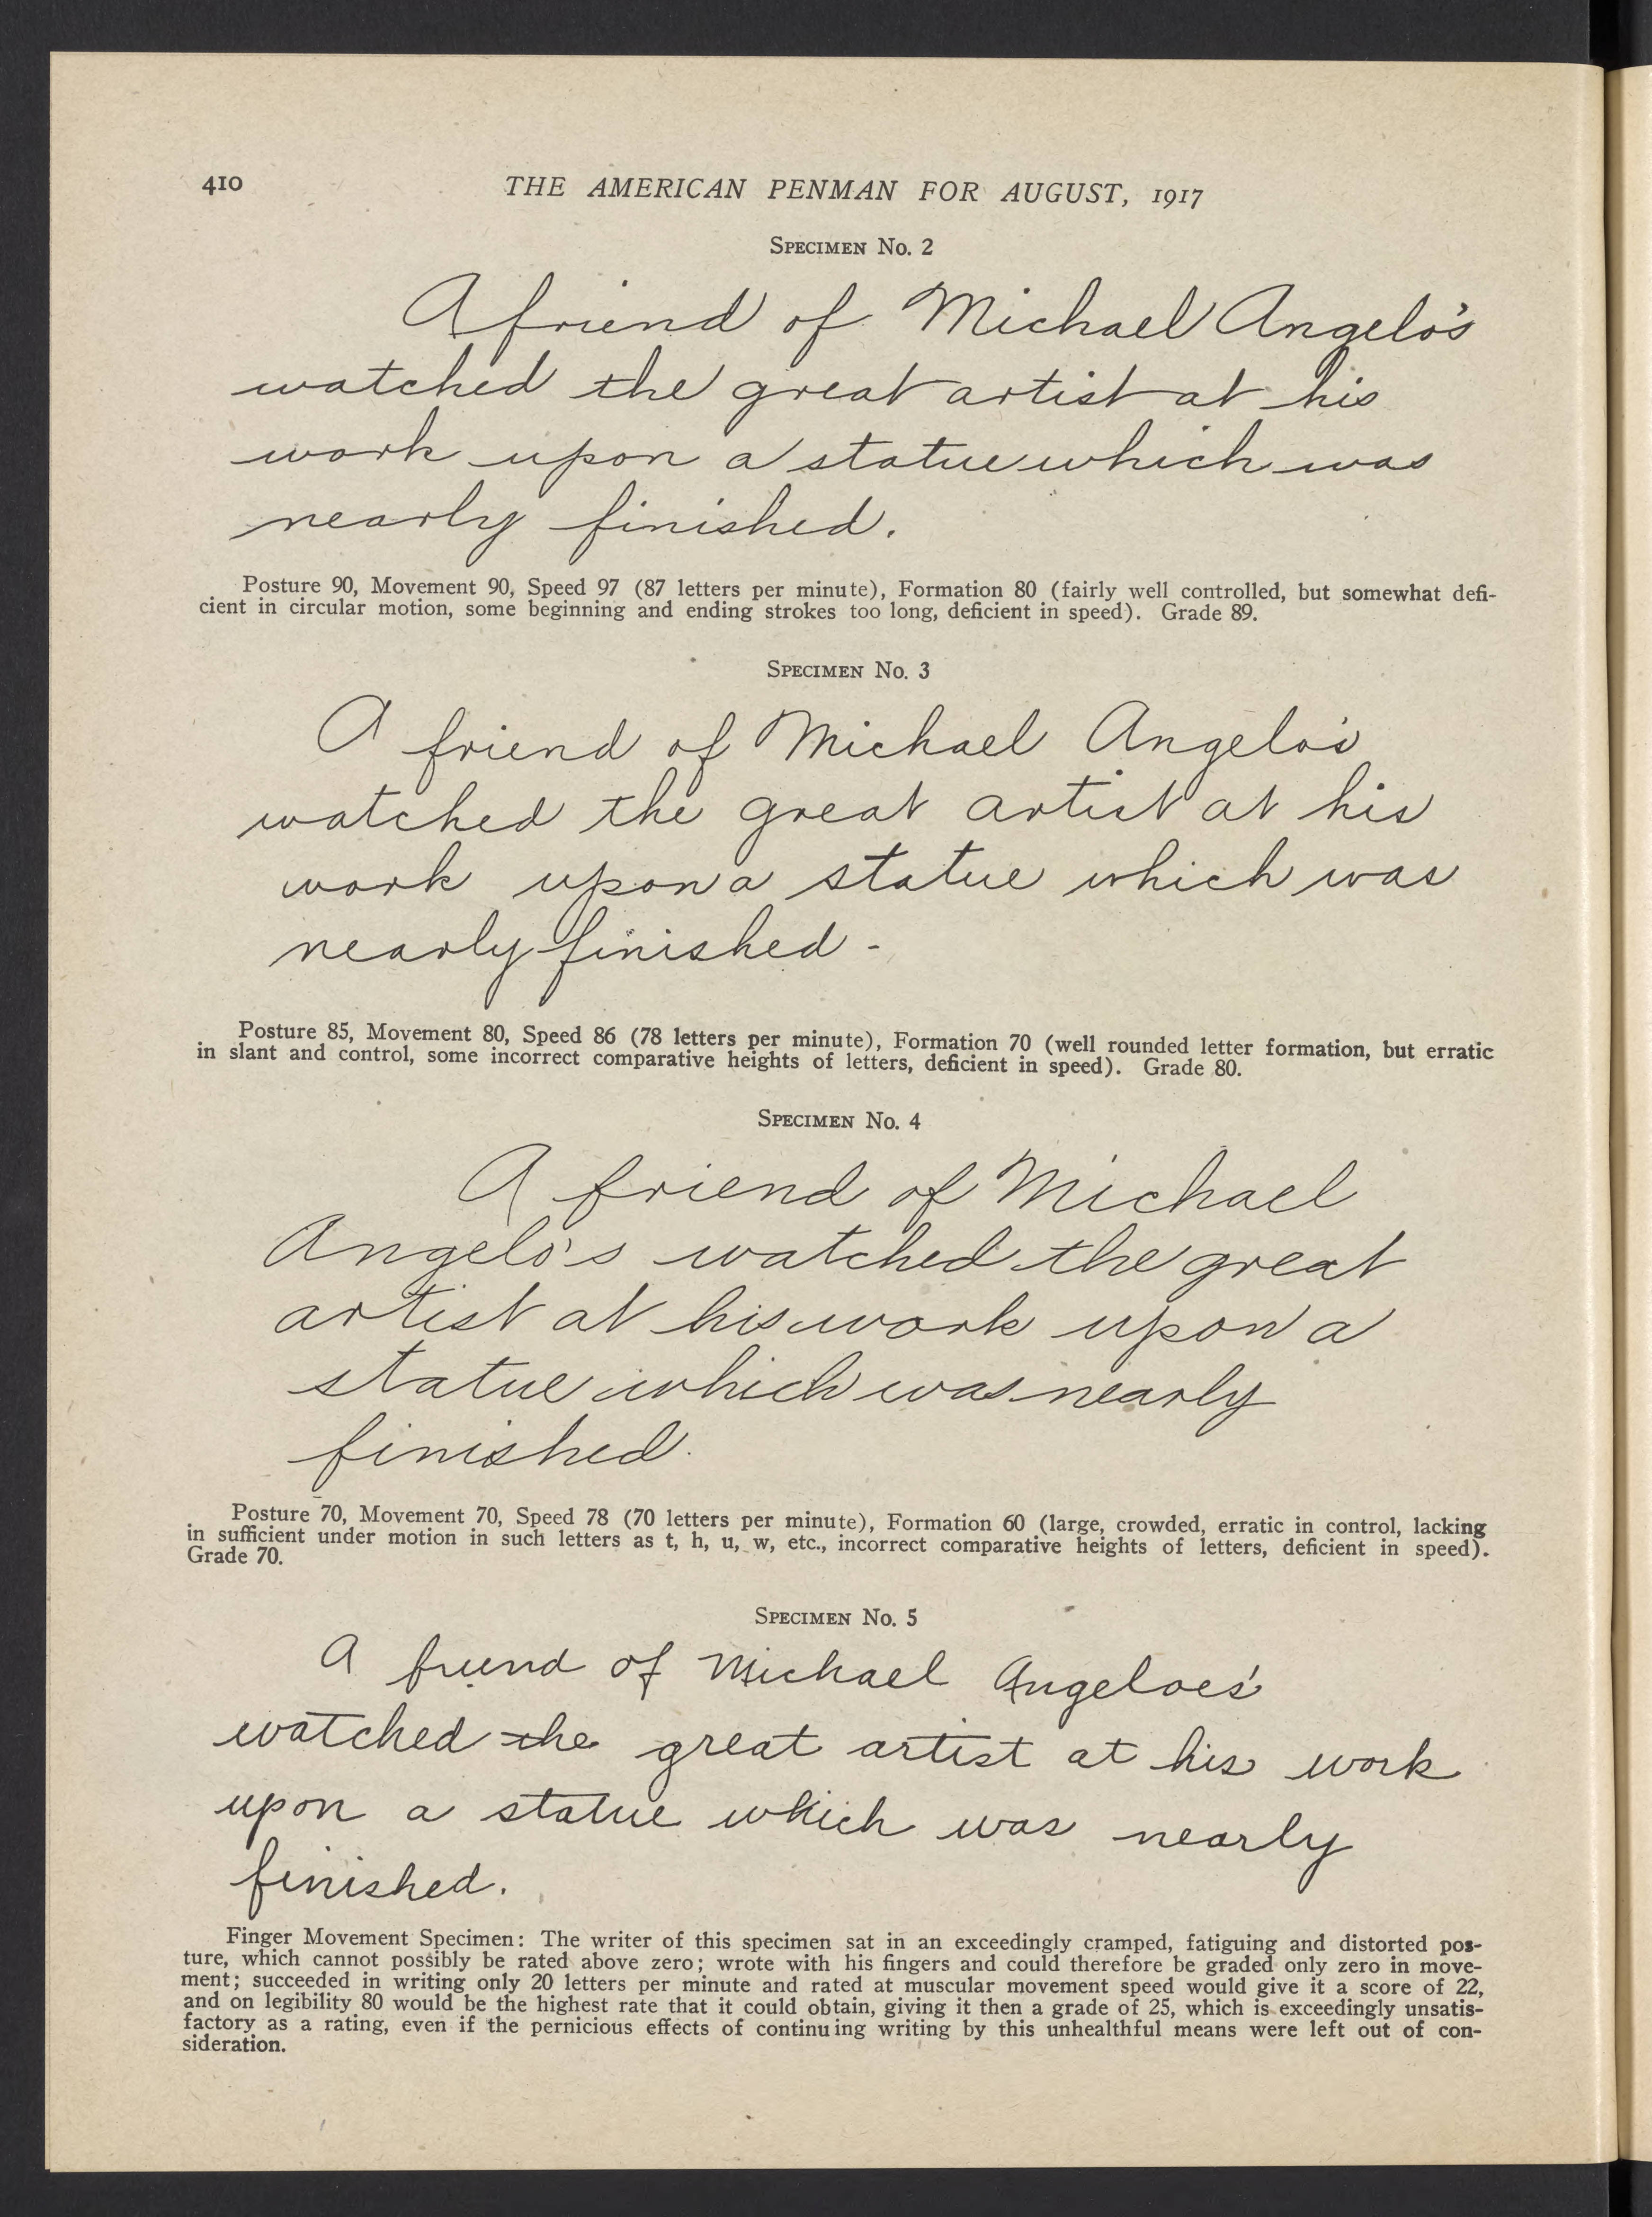 410 THE AMERICAN PENMAN FOR AUGUST, 1917
SPECIMEN NO. 2
A friend of Michael Angelo's
watched the great artist at his
work upon a statue which was
nearly finished.
Posture 90, Movement 90, Speed 97 (87 letters per minute), Formation 80 (fairly well controlled, but somewhat defi-
cient in circular motion, some beginning and ending strokes too long, deficient in speed). Grade 89.
SPECIMEN NO. 3
A friend of Michael Angelo's
watched the great artist at his
work upon a statue which was
nearly finished -
Posture 85, Movement 80, Speed 86 (78 letters per minute), Formation 70 (well rounded letter formation, but erratic
in slant and control, some incorrect comparative heights of letters, deficient in speed). Grade 80.
SPECIMEN NO. 4
A friend of Michael
Angelo's watched the great
artist at his work upon a
statue which was nearly
finished.
Posture 70, Movement 70, Speed 78 (70 letters per minute), Formation 60 (large, crowded, erratic in control, lacking
in sufficient under motion in such letters as t, h, u, w, etc., incorrect comparative heights of letters, deficient in speed).
Grade 70.
SPECIMEN NO. 5
A friend of Michael Angeloes'
watched the great artist at his work
upon a statue which was nearly
finished.
Finger Movement Specimen: The writer of this specimen sat in an exceedingly cramped, fatiguing and distorted pos-
ture, which cannot possibly be rated above zero; wrote with his fingers and could therefore be graded only zero in move-
ment; succeeded in writing only 20 letters per minute and rated at muscular movement speed would give it a score of 22,
and on legibility 80 would be the highest rate that it could obtain, giving it then a grade of 25, which is exceedingly unsatis-
factory as a rating, even if the pernicious effects of continuing writing by this unhealthful means were left out of con-
sideration.